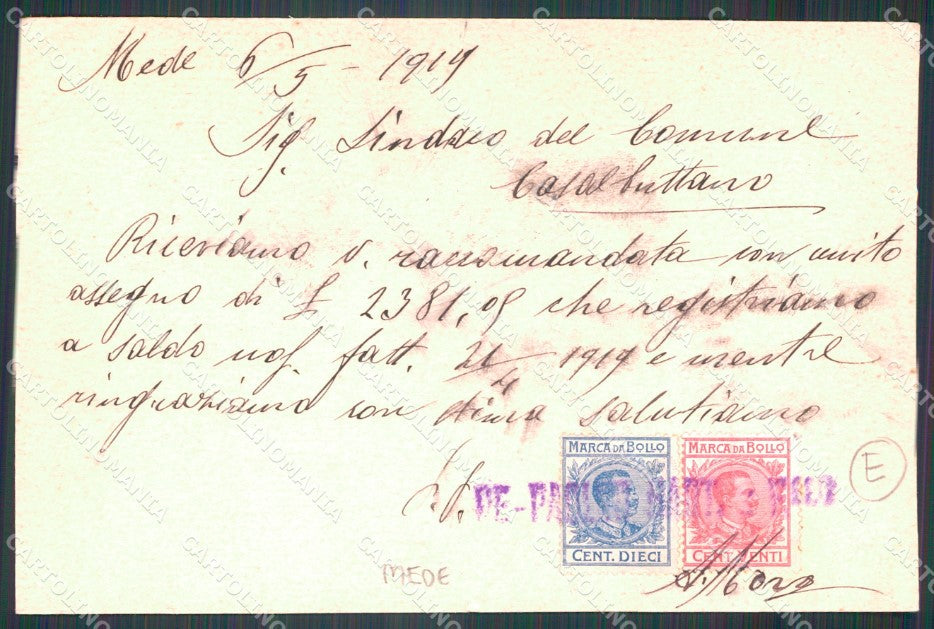 Mede 6/5 - 1919
Sig. Sindaco del Comune
Casalbuttano
Riceviamo v. raccomandata con unito
assegno di £ 2381,05 che registriamo
a saldo ns/. fatt. 21/4 1919 e mentre
ringraziamo con stima salutiamo
MARCA DA BOLLO MARCA DA BOLLO
DE-PAOLI
CENT. DIECI CENT. VENTI
MEDE
E
CARTOLINOMANIA